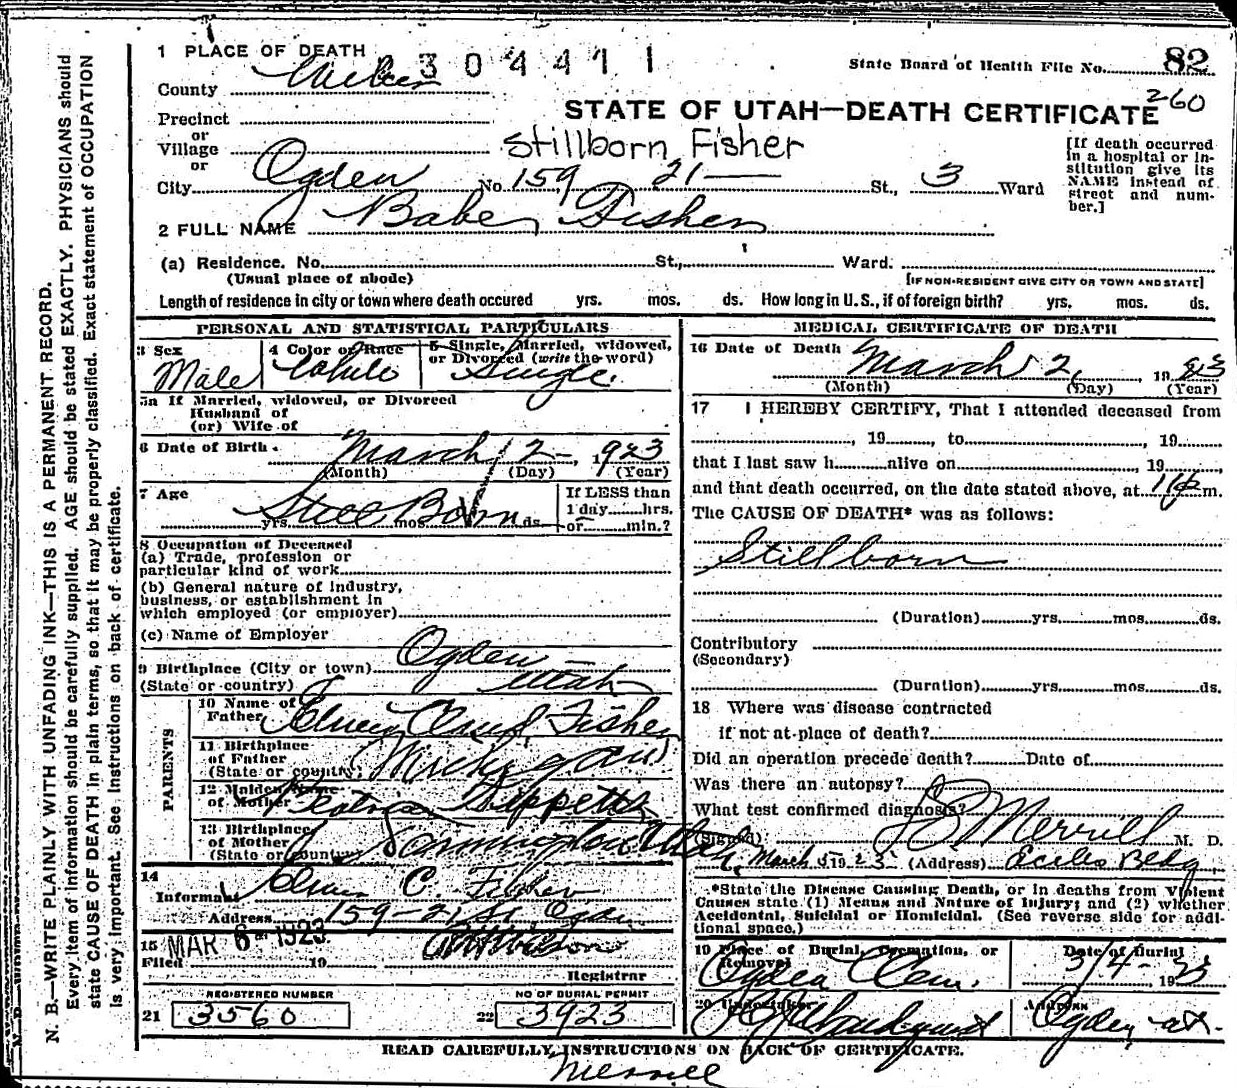 1 PLACE OF DEATH
304411
State Board of Health File No. 82
260
County Weber
STATE OF UTAH—DEATH CERTIFICATE
Precinct
or
Village
Stillborn Fisher
or
City Ogden No. 159 21— St., 3 Ward
[If death occurred in a hospital or institution give its NAME instead of street and number.]
2 FULL NAME Babe Fisher
(a) Residence. No. St., Ward.
(Usual place of abode)
[IF NON-RESIDENT GIVE CITY OR TOWN AND STATE]
Length of residence in city or town where death occured yrs. mos. ds. How long in U. S., if of foreign birth? yrs. mos. ds.
PERSONAL AND STATISTICAL PARTICULARS
3 Sex
Male
4 Color or Race
White
5 Single, Married, widowed,
or Divorced (write the word)
Single.
5a If Married, widowed, or Divorced
Husband of
(or) Wife of
6 Date of Birth March 2, 1923
(Month) (Day) (Year)
7 Age
Still Born
yrs. mos. ds.
If LESS than
1 day hrs.
or min.?
8 Occupation of Deceased
(a) Trade, profession or
particular kind of work
(b) General nature of industry,
business, or establishment in
which employed (or employer)
(c) Name of Employer
9 Birthplace (City or town) Ogden
(State or country) Utah
PARENTS
10 Name of
Father Fisher
11 Birthplace
of Father
(State or country) Michigan
12 Maiden Name
of Mother Beatrice Tippetts
13 Birthplace
of Mother
(State or country) Utah
14
Informant C. Fisher
Address 159-21 St Ogden
15 MAR 6- 1923
Filed 19
Registrar
REGISTERED NUMBER
21 3560
NO OF BURIAL PERMIT
22 3923
MEDICAL CERTIFICATE OF DEATH
16 Date of Death March 2, 1923
(Month) (Day) (Year)
17 I HEREBY CERTIFY, That I attended deceased from
, 19 , to , 19
that I last saw h alive on , 19 ,
and that death occurred, on the date stated above, at m.
The CAUSE OF DEATH* was as follows:
Stillborn
(Duration) yrs. mos. ds.
Contributory
(Secondary)
(Duration) yrs. mos. ds.
18 Where was disease contracted
if not at place of death?
Did an operation precede death? Date of
Was there an autopsy?
What test confirmed diagnosis?
(Signed) Merrill M. D.
March 5 19 23 (Address) Eccles Bldg
*State the Disease Causing Death, or in deaths from Violent
Causes state (1) Means and Nature of Injury; and (2) whether
Accidental, Suicidal or Homicidal. (See reverse side for additional space.)
19 Place of Burial, Cremation, or
Removal
Ogden Cem.
Date of Burial
3/4- 1923
20 Undertaker
Address
Ogden
READ CAREFULLY INSTRUCTIONS ON BACK OF CERTIFICATE.
Merrill
N. B.—WRITE PLAINLY WITH UNFADING INK—THIS IS A PERMANENT RECORD.
Every item of information should be carefully supplied. AGE should be stated EXACTLY. PHYSICIANS should
state CAUSE OF DEATH in plain terms, so that it may be properly classified. Exact statement of OCCUPATION
is very important. See instructions on back of certificate.